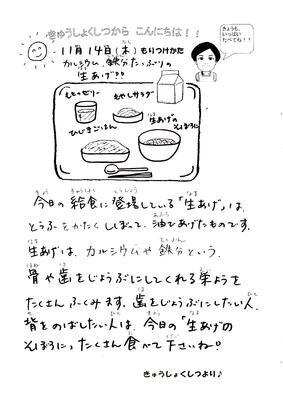 きゅうしょくしつから こんにちは！！
きょうも、
いっぱい
たべてね！！
11月14日(木) もりつけかた
カルシウム、鉄分たっぷりの
生あげ!!
ももゼリー
もやしサラダ
ひじきごはん
生あげの
そぼろに
今日の給食に登場している「生あげ」は、
とうふをかたくしぼって、油であげたものです。
生あげは、カルシウムや鉄分という、
骨や歯をじょうぶにしてくれる栄ようを
たくさんふくみます。歯をじょうぶにしたい人、
背をのばしたい人は、今日の「生あげの
そぼろに」たくさん食べて下さいね♡
きゅうしょくしつより♪